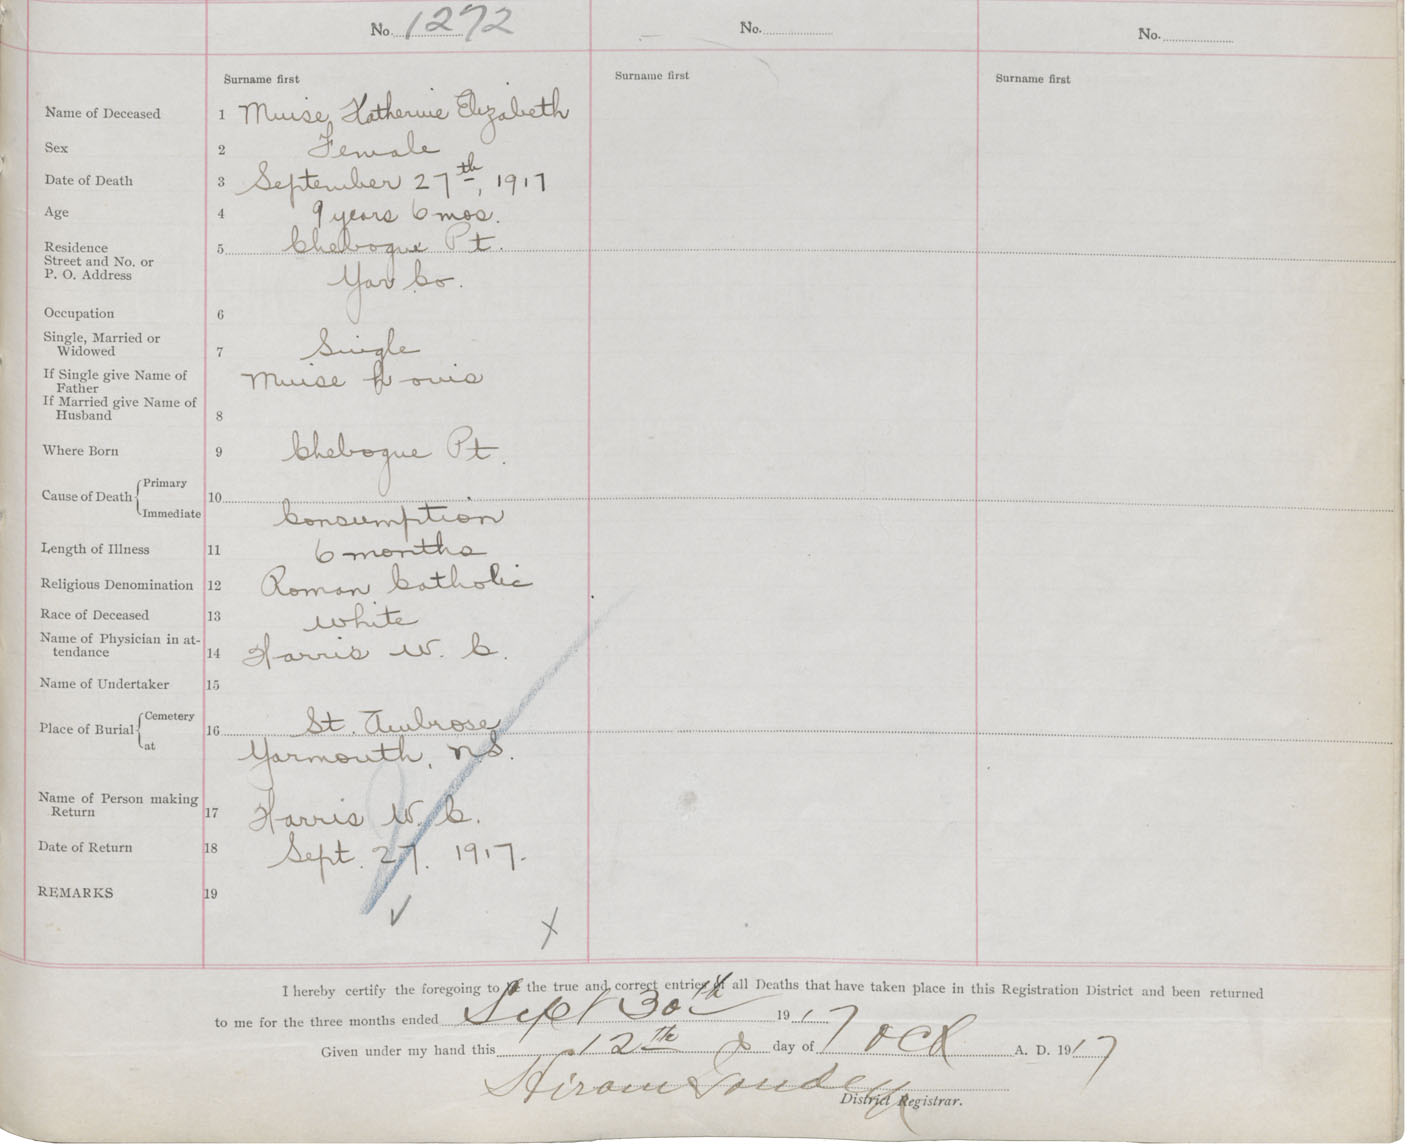 No. 1272
No.
No.
Surname first
Surname first
Surname first
Name of Deceased 1 Muise, Katherine Elizabeth
Sex 2 Female
Date of Death 3 September 27th, 1917
Age 4 9 years 6 mos.
Residence 5 Chebogue Pt.
Street and No. or
P. O. Address Yar Co.
Occupation 6
Single, Married or
Widowed 7 Single
If Single give Name of Muise Louis
Father
If Married give Name of
Husband 8
Where Born 9 Chebogue Pt.
Cause of Death Primary 10
Immediate Consumption
Length of Illness 11 6 months
Religious Denomination 12 Roman Catholic
Race of Deceased 13 White
Name of Physician in at-
tendance 14 Harris W. C.
Name of Undertaker 15
Place of Burial Cemetery 16 St. Ambrose
at Yarmouth, NS.
Name of Person making
Return 17 Harris W. C.
Date of Return 18 Sept. 27. 1917.
REMARKS 19
I hereby certify the foregoing to be the true and correct entries of all Deaths that have taken place in this Registration District and been returned
to me for the three months ended Sept 30th 1917
Given under my hand this 12th day of Oct A. D. 1917
Hiram
District Registrar.